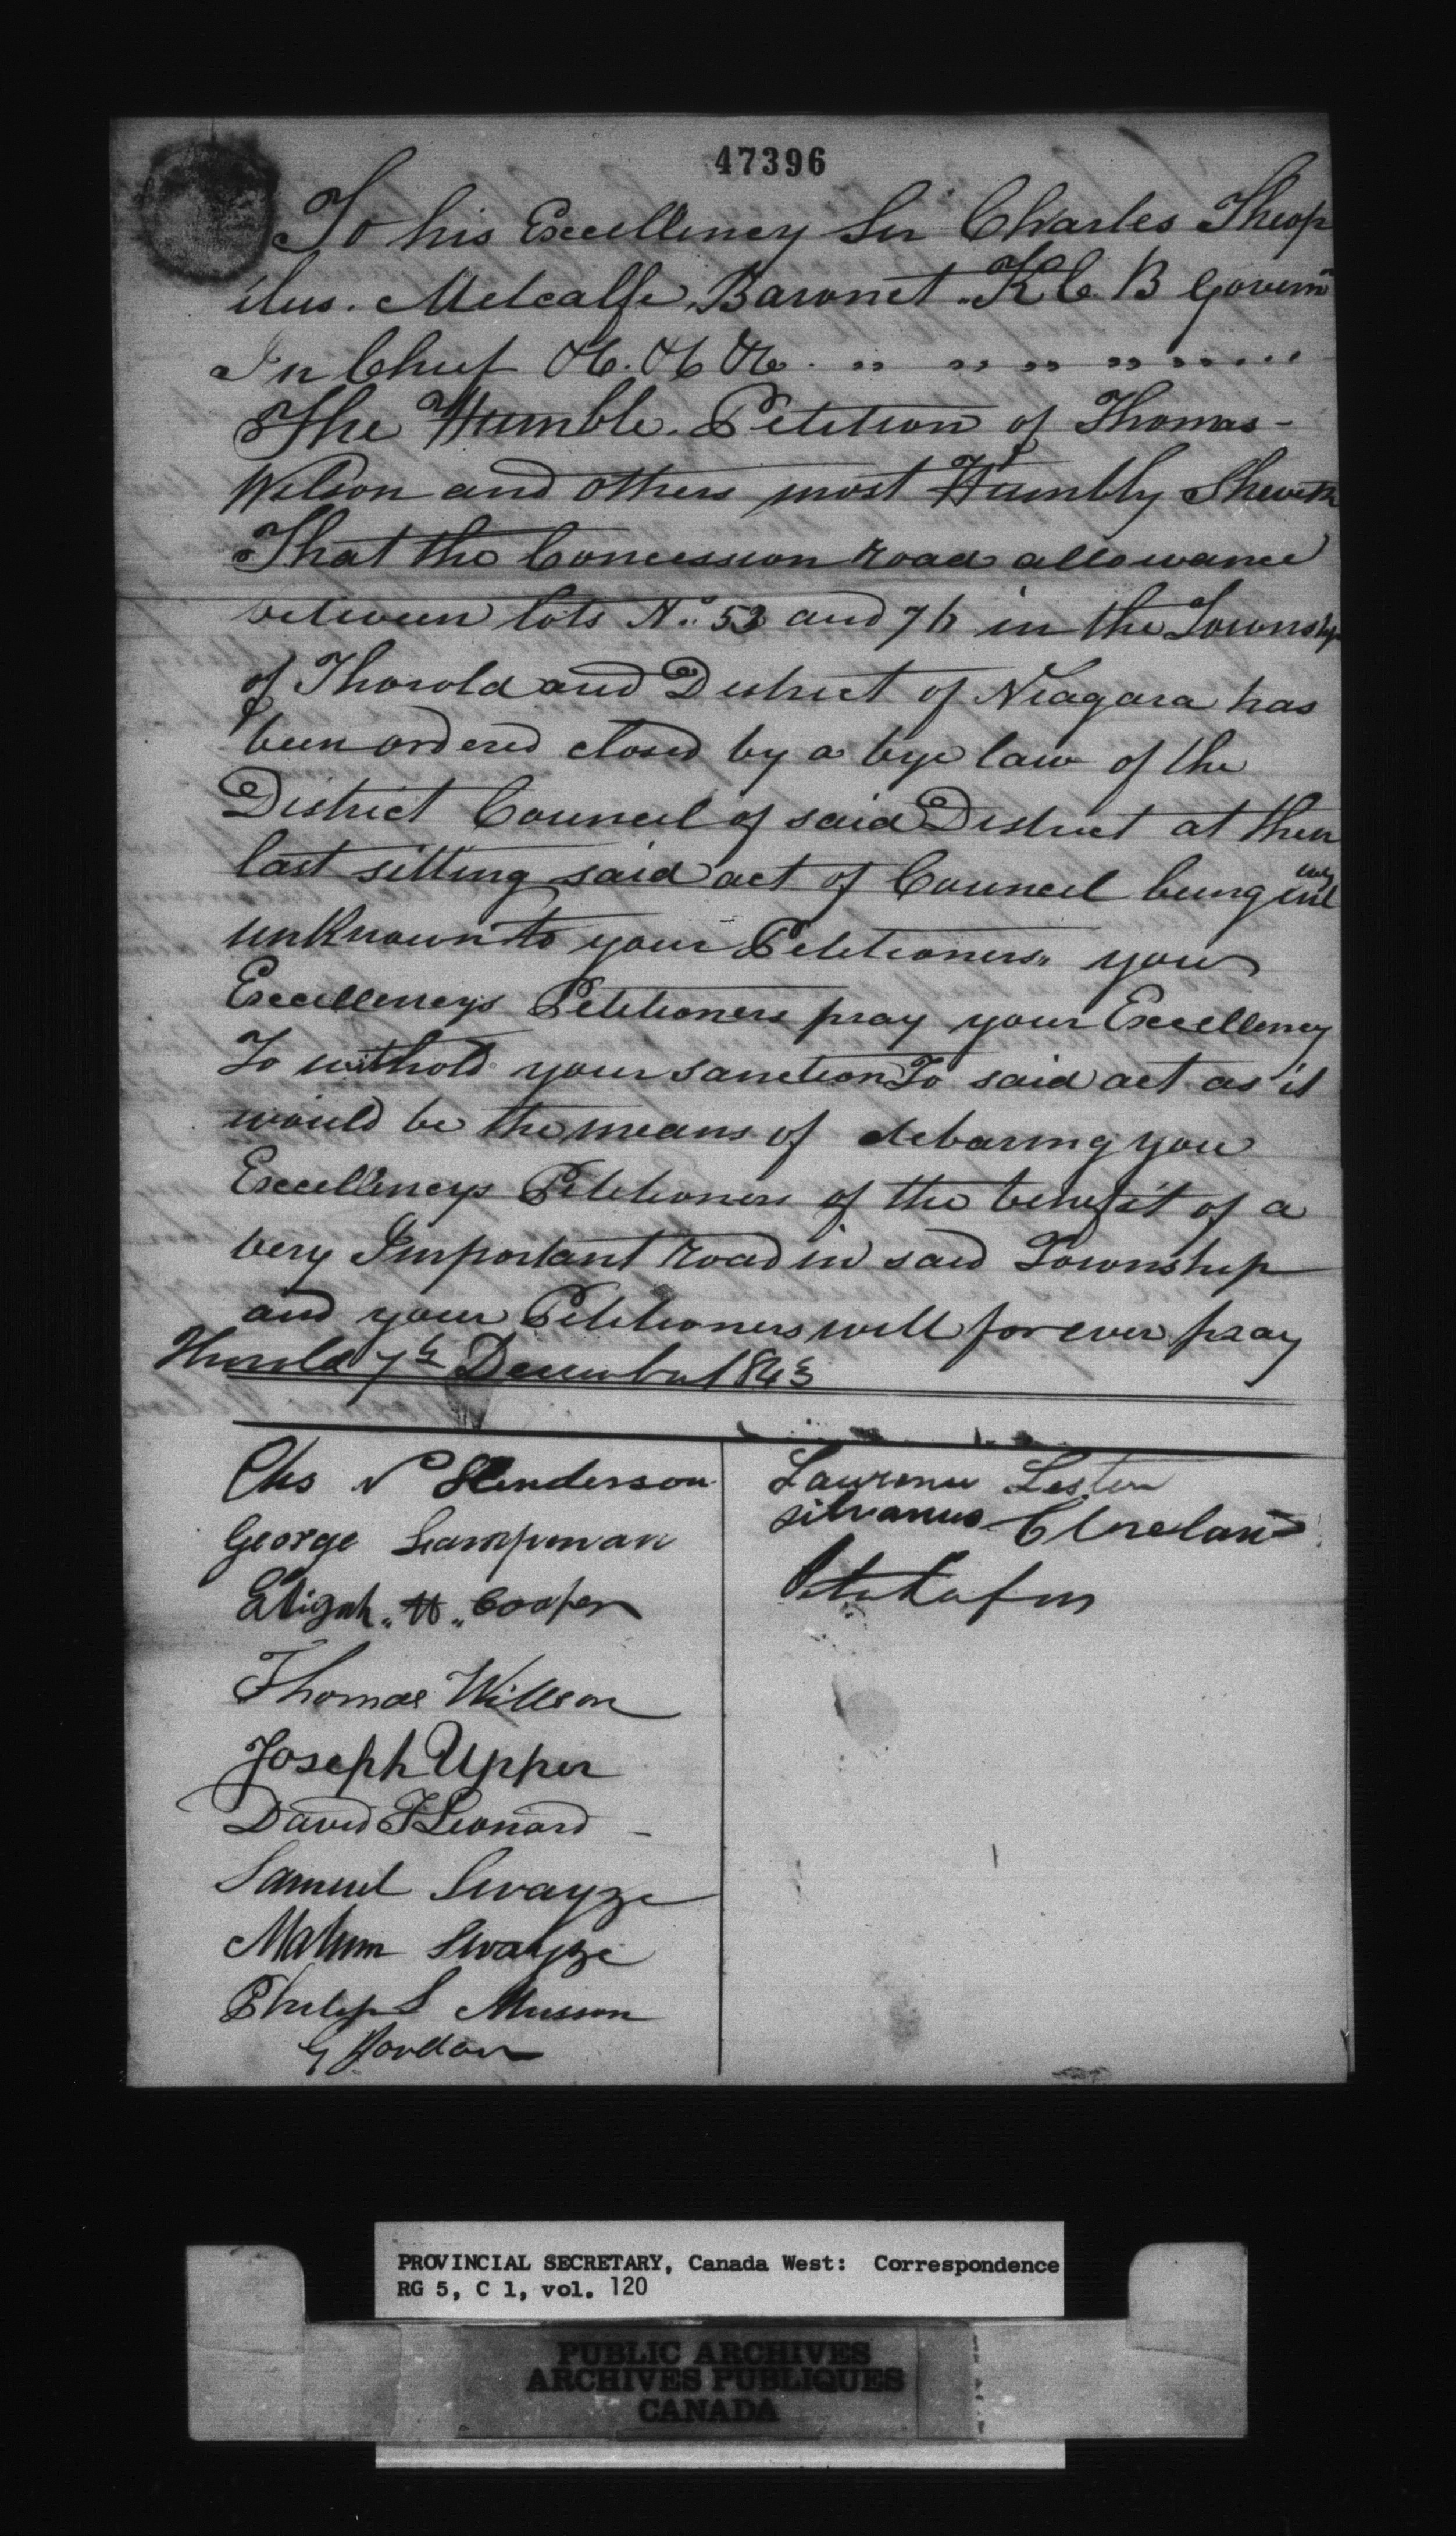 47396
To his Excellency Sir Charles Theop
ilus. Metcalfe, Baronet K.C.B Govern
In Chief &c. &c &c.
The Humble Petition of Thomas
Wilson and others most Humbly Sheweth
That the Concession road allowance
between lots No. 53 and 76 in the Township
of Thorold and District of Niagara has
been ordered closed by a bye law of the
District Council of said District at their
last sitting said act of Council being
unknown to your Petitioners your
Excellencys Petitioners pray your Excellency
To withold your sanction To said act as it
would be the means of debaring you
Excellencys Petitioners of the benefit of a
very Important road in said Township
and your Petitioners will forever pray
Thorold 7th December 1843
Chs N Henderson
George Lampman
Elijah H Cooper
Thomas Willson
Joseph Upper
David F Leonard
Samuel Swayze
Swayze
Philip S Musson
G Jordan
Lawrence Lester
Silvanus Cleveland
PROVINCIAL SECRETARY, Canada West: Correspondence
RG 5, C 1, vol. 120
PUBLIC ARCHIVES
ARCHIVES PUBLIQUES
CANADA